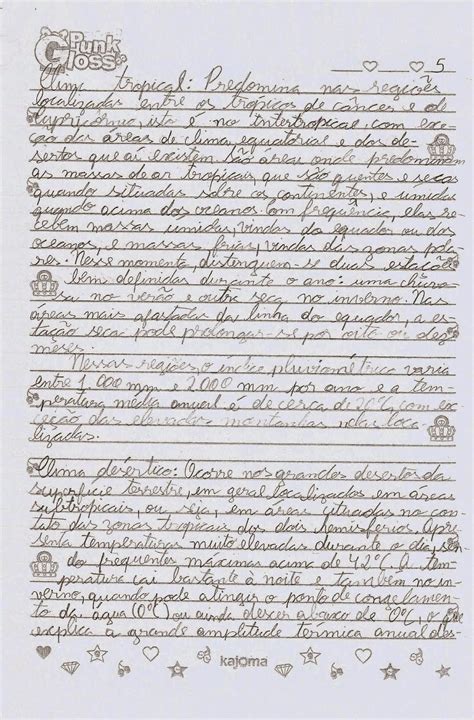 Punk
Gloss
5
Clima tropical: Predomina nas regiões
localizadas entre os trópicos de câncer e de
capricórnio, isto é na intertropical, com exce-
ção das áreas de clima equatorial e dos de-
sertos que aí existem. São áreas onde predominam
as massas de ar tropicais, que são quentes e secas
quando situadas sobre os continentes, e úmidas
quando acima dos oceanos. Com frequência, elas re-
cebem massas úmidas, vindas do equador ou dos
oceanos, e massas frias, vindas das zonas pola-
res. Nesse momento, distinguem-se duas estações
bem definidas durante o ano: uma chuvo-
sa no verão e outra seca no inverno. Nas
áreas mais afastadas da linha do equador, a es-
tação seca pode prolongar-se por oito ou dez
mêses.
Nessas regiões, o índice pluviométrico varia
entre 1.000 mm e 2000 mm por ano e a tem-
peratura média anual é de cerca de 20°C, com ex-
ceção das elevadas montanhas nelas loca-
lizadas.
Clima désértico: Ocorre nos grandes desertos da
superfície terrestre, em geral localizados em áreas
subtropicais, ou seja, em áreas situadas no con-
tato das zonas tropicais dos dois hemisférios. Apre-
senta temperaturas muito elevadas durante o dia, sen-
do frequentes máximas acima de 42°C. A tem-
peratura cai bastante à noite e também no in-
verno, quando pode atingir o ponto de congelamen-
to da água (0°C) ou ainda descer abaixo de 0°C, o que
explica a grande amplitude térmica anual des-
kajoma